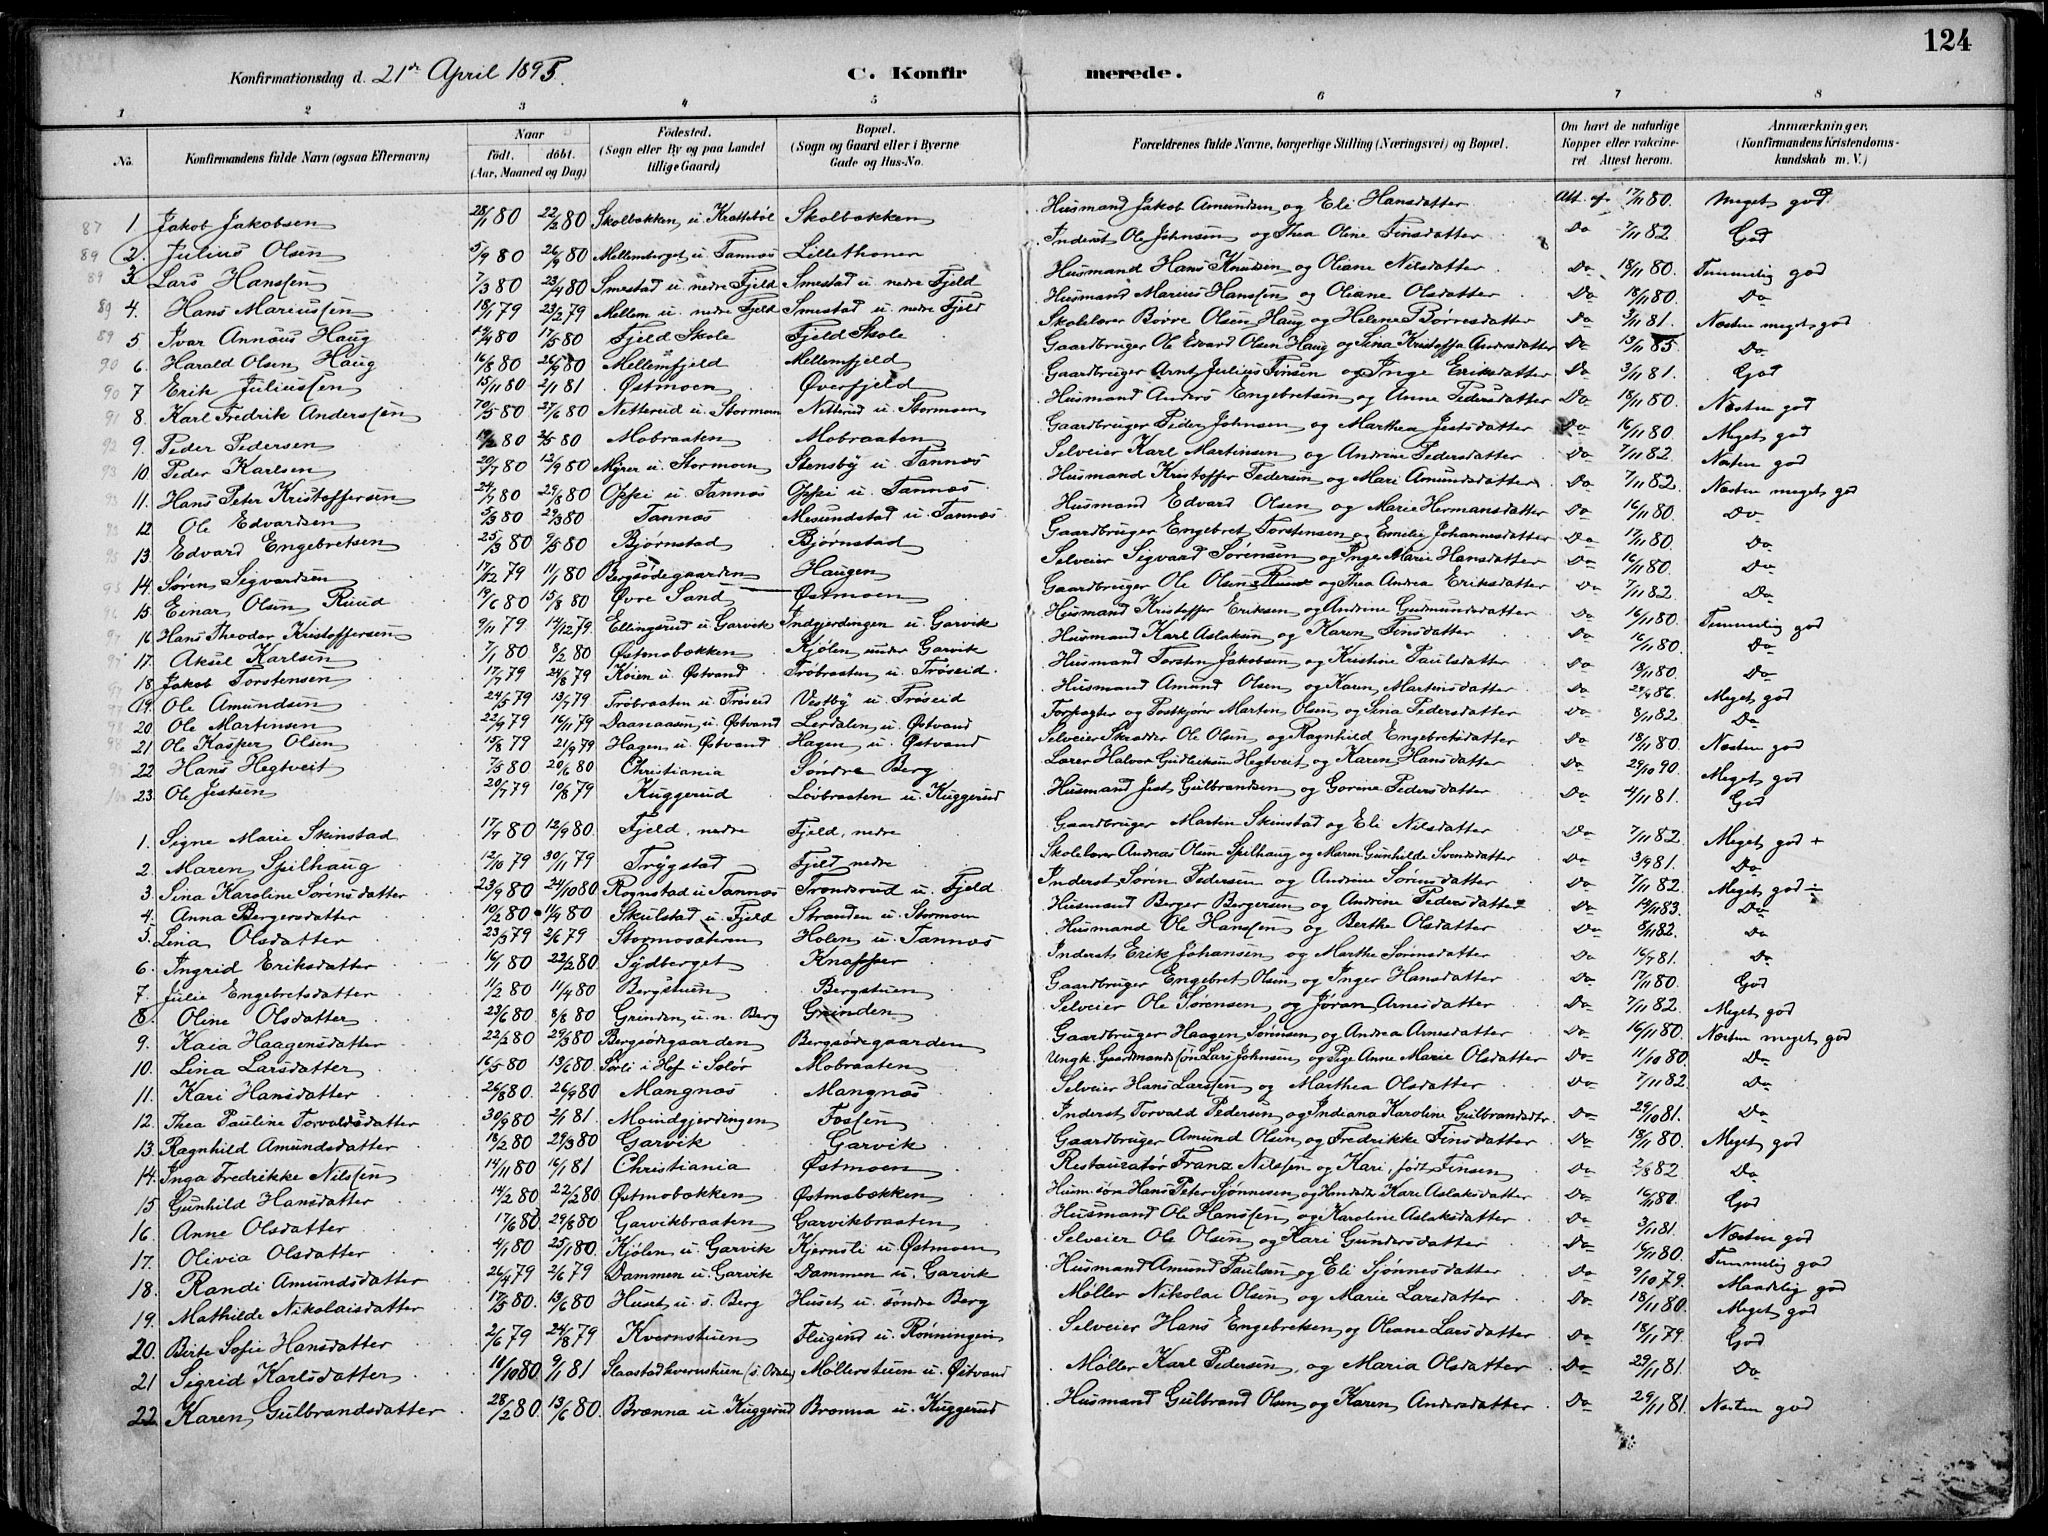 124
Konfirmationsdag d. 21de April 1895. C. Konfirmerede.
1 2 3 4 5 6 7 8
No. Konfirmandens fulde Navn (ogsaa Efternavn) Naar født, døbt. (Aar, Maaned og Dag) Fødested. (Sogn eller By og paa Landet tillige Gaard) Bopæl. (Sogn og Gaard eller i Byerne Gade og Hus-No. Forældrenes fulde Navne, borgerlige Stilling (Næringsvei) og Bopæl. Om havt de naturlige Kopper eller vakcineret. Attest herom. Anmærkninger. (Konfirmandens Kristendomskundskab m. V.)
1 Jakob Jakobsen 28/1 80 22/2 80 Skolbakken u. Krattebøl Skolbakken Husmand Jakob Amundsen og Eli Hansdatter Att. af 17/11 80. Meget god
2. Julius Olsen 5/9 80 26/9 80 Mellemberget u. Tannæs Lillethoner Inderst Ole Johnsen og Thea Oline Finsdatter Do 7/11 82 God
3 Lars Hanssen 7/3 80 23/4 80 Smestad u. nedre Fjeld Smestad u. nedre Fjeld Husmand Hans Knudsen og Oliane Nilsdatter Do 18/11 80. Temmelig god
4. Hans Mariussen 18/1 79 23/2 79 Mellem u. nedre Fjeld Smestad u. nedre Fjeld Husmand Marius Hanssen og Oliane Olsdatter Do 18/11 80. Do
5 Ivar Annæus Haug 14/4 80 17/5 80 Fjeld Skole Fjeld Skole Skolelærer Børre Olsen Haug og Helene Børresdatter Do 3/11 81. Næsten meget god
6. Harald Olsen Haug 16/8 80 26/9 80 Mellemfjeld Mellemfjeld Gaardbruger Ole Edvard Olsen Haug og Sina Kristoffa Andersdatter Do 13/11 85 Do
7 Erik Juliussen 15/11 80 2/1 81 Østmoen Øverfjeld Gaardbruger Arnt Julius Finsen og Inge Eriksdatter Do 3/11 81. God
8 Karl Fredrik Anderssen 27/6 80 Netterud u. Stormoen Netterud u. Stormoen Husmand Anders Engebretsen og Anne Pedersdatter Do 18/11 80 Næsten god
9. Peder Pedersen 80 2/5 80 Mobraaten Mobraaten Gaardbruger Peder Johnsen og Marthea Jestsdatter Do 16/11 80. Meget god
10 Peder Karlsen 20/7 80 12/9 80 Myrer u. Stormoen Stensby u. Tannæs Selveier Karl Martinsen og Andrine Pedersdatter Do 7/11 82 Næsten god
11. Hans Peter Kristoffersen 24/7 80 29/8 80 Oppi u. Tannæs Oppi u. Tannæs Husmand Kristoffer Pedersen og Mari Amundsdatter Do 7/11 82. Næsten meget god
12 Ole Edvardsen 5/3 80 29/3 80 Tannæs Mesundstad u. Tannæs Husmand Edvard Olsen og Marie Hermansdatter Do 16/11 80. Do
13 Edvard Engebretsen 25/3 80 9/5 80 Bjørnstad Bjørnstad Gaardbruger Engebret Torstensen og Emilie Johannesdatter Do 17/11 80. Do
14. Søren Sigvardsen 17/12 79 11/1 80 Bergsødegaarden Haugen Selveier Sigvard Sørensen og Inge Marie Hansdatter Do 16/11 80. Do
15. Einar Olsen Ruud 19/6 80 15/8 80 Øvre Sand Østmoen Gaardbruger Ole Olsen Ruud og Thea Andrea Eriksdatter Do 7/11 82. Do
16. Hans Theodor Kristoffersen 9/11 79. 14/12 79. Ellingsrud u. Garvik Indgjerdingen u. Garvik Husmand Kristoffer Eriksen og Andrine Gudmundsdatter Do 16/11 80. Temmelig god
17. Aksel Karlsen 7/1 80 8/2 80 Østmobækken Kjølen under Garvik Husmand Karl Aslaksen og Karen Finsdatter Do 16/11 80. Do
18. Jakob Torstensen 17/7 79 24/8 79 Køien u. Østvand Trøbraaten u. Trøseid Husmand Torsten Jakobsen og Kristine Paulsdatter Do 18/11 80. Do
19. Ole Amundsen 24/5 79 13/7 79 Trøbraaten u. Trøseid Vestby u. Trøseid Husmand Amund Olsen og Karen Martinsdatter Do 29/4 86. Meget god
20 Ole Martinsen 22/9 79 16/11 79 Daanaasen u. Østvand Lerdalen u. Østvand Forpagter og Postkjører Martin Olsen og Sina Pedersdatter Do 8/11 82. Do
21 Ole Kasper Olsen 15/8 79 21/9 79 Hagen u. Østvand Hagen u. Østvand Selveier Skrædder Ole Olsen og Ragnhild Engebretsdatter Do 18/11 80. Næsten god
22 Hans Hegtveit 7/5 80 20/6 80 Christiania Søndre Berg Lærer Halvor Gudleiksen Hegtveit og Karen Hansdatter Do 29/10 90. Meget god
23. Ole Jestsen 20/7 79 10/8 79 Kuggerud Løvbraaten u. Kuggerud Husmand Jest Gulbrandsen og Gorine Pedersdatter Do 4/11 81. God
1. Signe Marie Skinstad 17/7 80 12/9 80. Fjeld, nedre Fjeld, nedre Gaardbruger Martin Skinstad og Eli Nilsdatter Do 7/11 82. Meget god +
2. Maren Spilhaug 12/10 79 30/11 79 Trygstad Fjeld nedre Skolelærer Andreas Olsen Spilhaug og Maren Gunhilde Svendsdatter Do 3/9 81. Do
3 Sina Karoline Sørensdatter 23/9 80 24/10 80 Rognstad u. Tannæs Tronsrud u. Fjeld Inderst Søren Pedersen og Andrine Sørensdatter Do 7/11 82 Meget god ÷
4. Anna Bergersdatter 10/2 80 11/4 80 Skulstad u. Fjeld Stranden u. Stormoen Husmand Berger Bergersen og Andrine Pedersdatter Do 19/11 83. Do
5. Lina Olsdatter 23/3 79 2/6 79 Stormosæteren Holen u. Tannæs Husmand Ole Hanssen og Berthe Olsdatter Do 8/11 82. Do
6. Ingrid Eriksdatter 16/1 80 22/2 80. Sydberget Knapper Inderst Erik Johansen og Marthe Sørensdatter Do 16/7 81. Do
7. Julie Engebretsdatter 11/2 80 11/4 80 Bergstuen Bergstuen Gaardbruger Engebret Olsen og Inger Hansdatter Do 17/11 80. God
8. Oline Olsdatter 23/6 80. 8/8 80 Grinden u. n. Berg Grinden Selveier Ole Sørensen og Jøran Arnesdatter Do 7/11 82. Meget god
9. Kaia Haagensdatter 22/2 80 29/3 80 Bergsødegaarden Bergsødegaarden Gaardbruger Haagen Sørensen og Andrea Arnesdatter Do 16/11 80. Næsten meget god
10. Lina Larsdatter 16/5 80 13/6 80. Sørli i Hof i Solør Mobraaten Ungk. Gaardmandssøn Lars Johnsen og Pige Anne Marie Olsdatter Do 11/10 80. Do
11. Kari Hansdatter 26/8 80. 26/9 80 Mangnæs Mangnæs Selveier Hans Larssen og Marthea Olsdatter Do 7/11 82. Do
12. Thea Pauline Torvaldsdatter 30/9 80 2/1 81. Moindgjerdingen Fossen Inderst Torvald Pedersen og Indiana Karoline Gulbrandsdtr. Do 29/10 81. Do
13. Ragnhild Amundsdatter 18/2 80 29/3 80 Garvik Garvik Gaardbruger Amund Olsen og Fredrikke Finsdatter Do 18/11 80. Meget god
14. Inga Fredrikke Nilssen 14/11 80 16/1 81 Christiania Østmoen Restauratør Franz Nilssen og Kari, født Finsen Do 2/8 82 Do
15 Gunhild Hansdatter 14/2 80 22/2 80 Østmobækken Østmobækken Husm.søn Hans Peter Sjønnesen og Kari Aslaksdatter Do 16/11 80. God
16. Anne Olsdatter 17/6 80 29/8 80 Garvikbraaten Garvikbraaten Husmand Ole Hanssen og Karoline Aslaksdatter Do 3/11 81. Næsten god
17. Olivia Olsdatter 4/1 80 25/1 80. Kjølen u. Garvik Kjernsli u. Østmoen Selveier Ole Olsen og Kari Gundersdatter Do 16/11 80. Temmelig god
18. Randi Amundsdatter 26/4 79 2/6 79 Dammen u. Garvik Dammen u. Garvik Husmand Amund Paulsen og Eli Sjønnesdatter Do 9/10 79. Maadelig god
19. Mathilde Nikolaisdatter 17/5 80. 13/6 80 Huset u. s. Berg Huset u. søndre Berg Møller Nikolai Olsen og Marie Larsdatter Do 18/11 80. Meget god
20. Birte Sofie Hansdatter 2/6 79 24/8 79 Kvernstuen Flugind u. Rønningen Selveier Hans Engebretsen og Oleane Larsdatter Do 18/11 79. God
21 Sigrid Karlsdatter 10/10 80 9/1 81 Slaastadkvernstuen (s. Odalen) Møllerstuen u. Østvand Møller Karl Pedersen og Maria Olsdatter Do 29/11 81. Do
22. Karen Gulbrandsdatter 28/2 80 13/6 80. Brænna u. Kuggerud Brænna u. Kuggerud Husmand Gulbrand Olsen og Karen Andersdatter Do 29/11 81. Næsten god